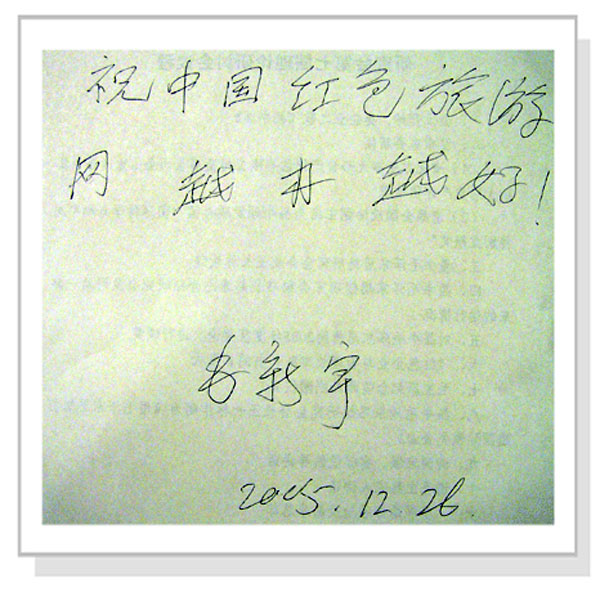 祝中国红色旅游
网 越 办 越 好!
毛新宇
2005.12.26